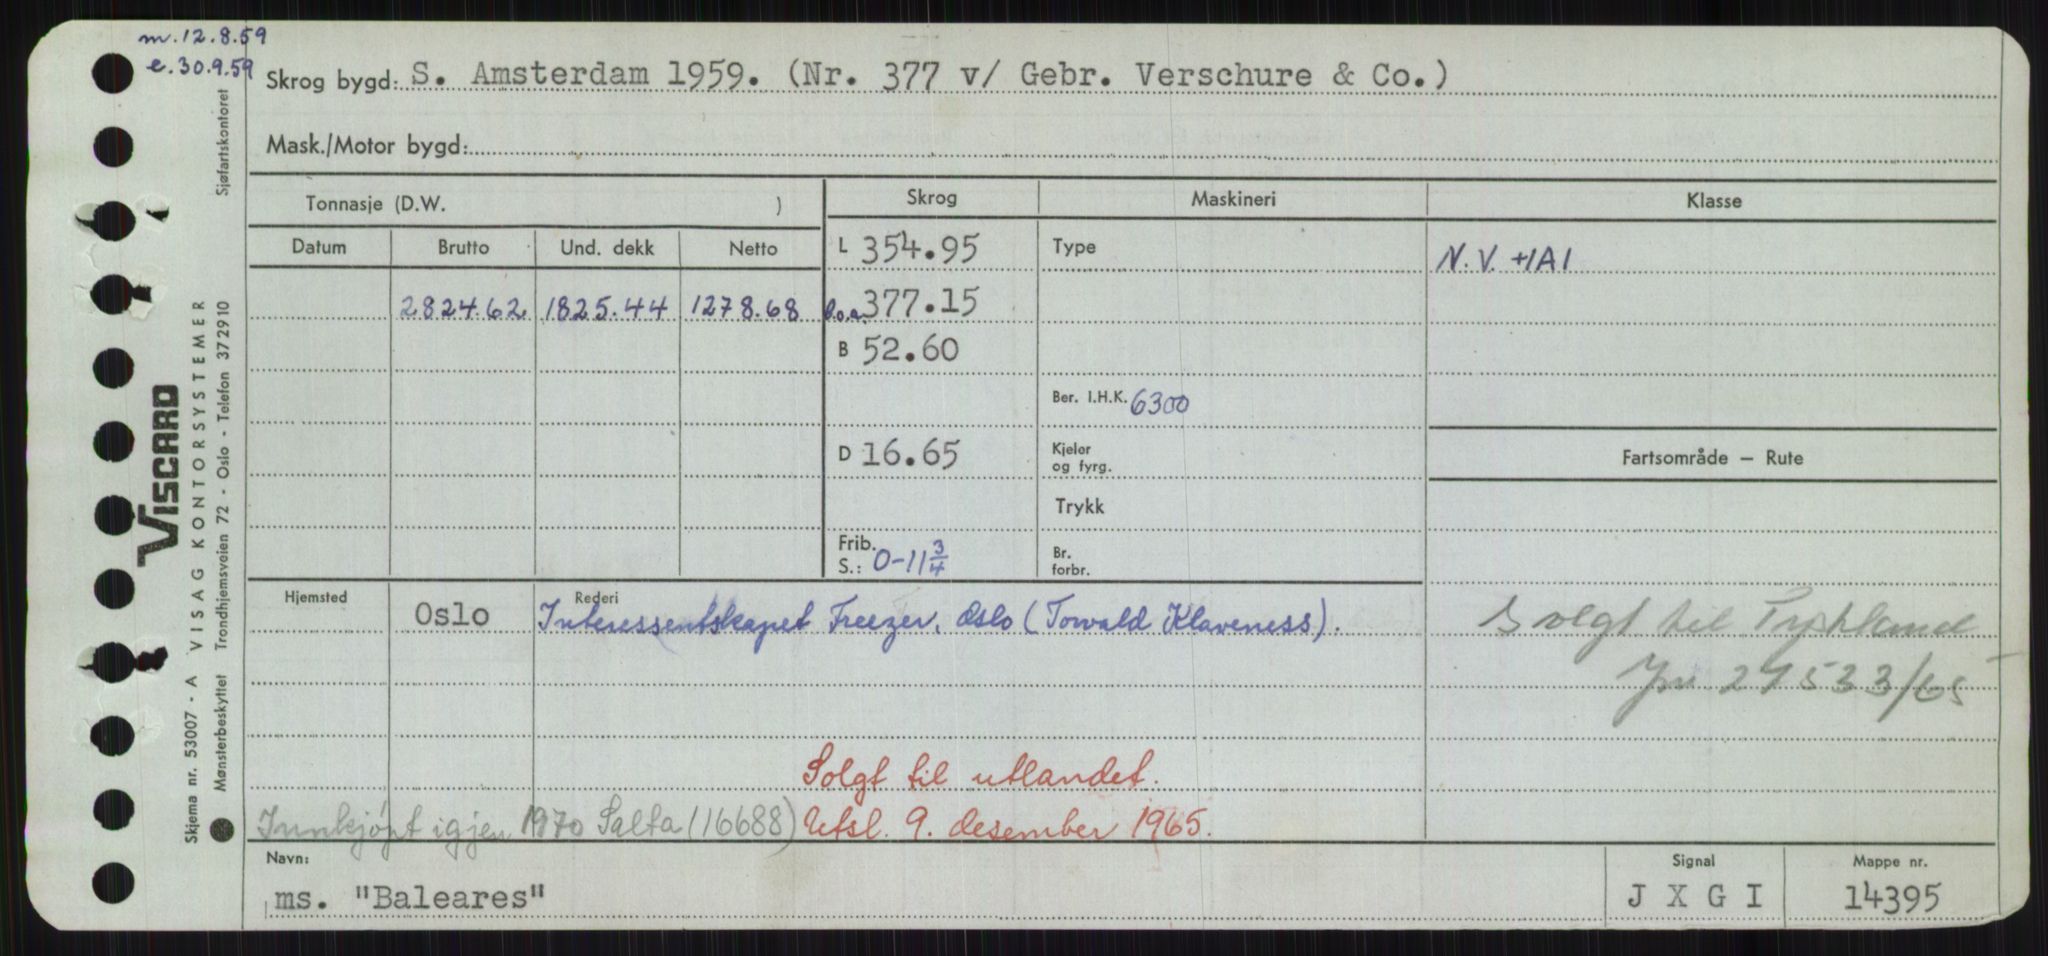 m. 12.8.59
e. 30.9.59
Skrog bygd: S. Amsterdam 1959. (Nr. 377 v/ Gebr. Verschure & Co.)
Mask./Motor bygd:
Tonnasje (D.W. )
Skrog
Maskineri
Klasse
Datum Brutto Und. dekk Netto
L 354.95
Type
N.V. +1A1
2824.62 1825.44 1278.68
l.o.a. 377.15
B 52.60
Ber. I.H.K. 6300
D 16.65
Kjeler
og fyrg.
Fartsområde — Rute
Trykk
Frib.
S.: 0-11 3/4
Br.
forbr.
Hjemsted
Oslo
Rederi
Interessentskapet Freezer, Oslo (Torvald Klaveness).
Solgt til Tyskland
Jnr 27533/65
Solgt til utlandet.
Innkjöpt igjen 1970 Salta (16688) Utsl. 9. desember 1965.
Navn:
ms. "Baleares"
Signal
J X G I
Mappe nr.
14395
VISCARD
VISAG KONTORSYSTEMER
Sjøfartskontoret
Skjema nr. 53007 - A
Mønsterbeskyttet Trondhjemsveien 72 - Oslo - Telefon 37 29 10